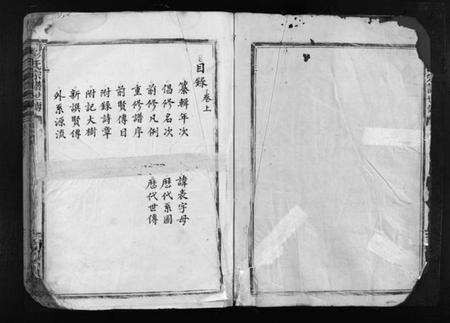 目錄 卷上
纂輯年次
倡修名次
前修凡例
重修譜序
前賢傳目
附錄詩章
附記大樹
新譔賢傳
外系源流
諱表字母
歷代系圖
歷代世傳